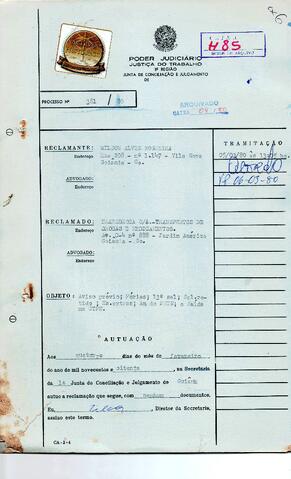 485
PODER JUDICIÁRIO
JUSTIÇA DO TRABALHO
3ª REGIÃO
JUNTA DE CONCILIAÇÃO E JULGAMENTO
DE
PROCESSO Nº 361 / 80
ARQUIVADO
RECLAMANTE: WILSON ALVES
Endereço Rua 208 - nº 1.147 - Vila Nova
Goiânia - Go.
ADVOGADO:
Endereço
RECLAMADO: TRANSDROGA S/A.-TRANSPORTES DE
DROGAS E MEDICAMENTOS.
Endereço Av. C-4 nº 888 - Jardim América
Goiânia - Go.
ADVOGADO:
Endereço
TRAMITAÇÃO
06-03-80
OBJETO: Aviso prévio; Férias; 13º sal; Sal.re-
tido ; Hs.extras; Am do FGTS; e Saída
na CTPS.
AUTUAÇÃO
Aos quatro dias do mês de fevereiro
do ano de mil novecentos e oitenta, na Secretaria
da 1a Junta de Conciliação e Julgamento de Goiânia
autuo a reclamação que segue, com nenhum documentos.
Eu, Diretor da Secretaria,
assino este termo.